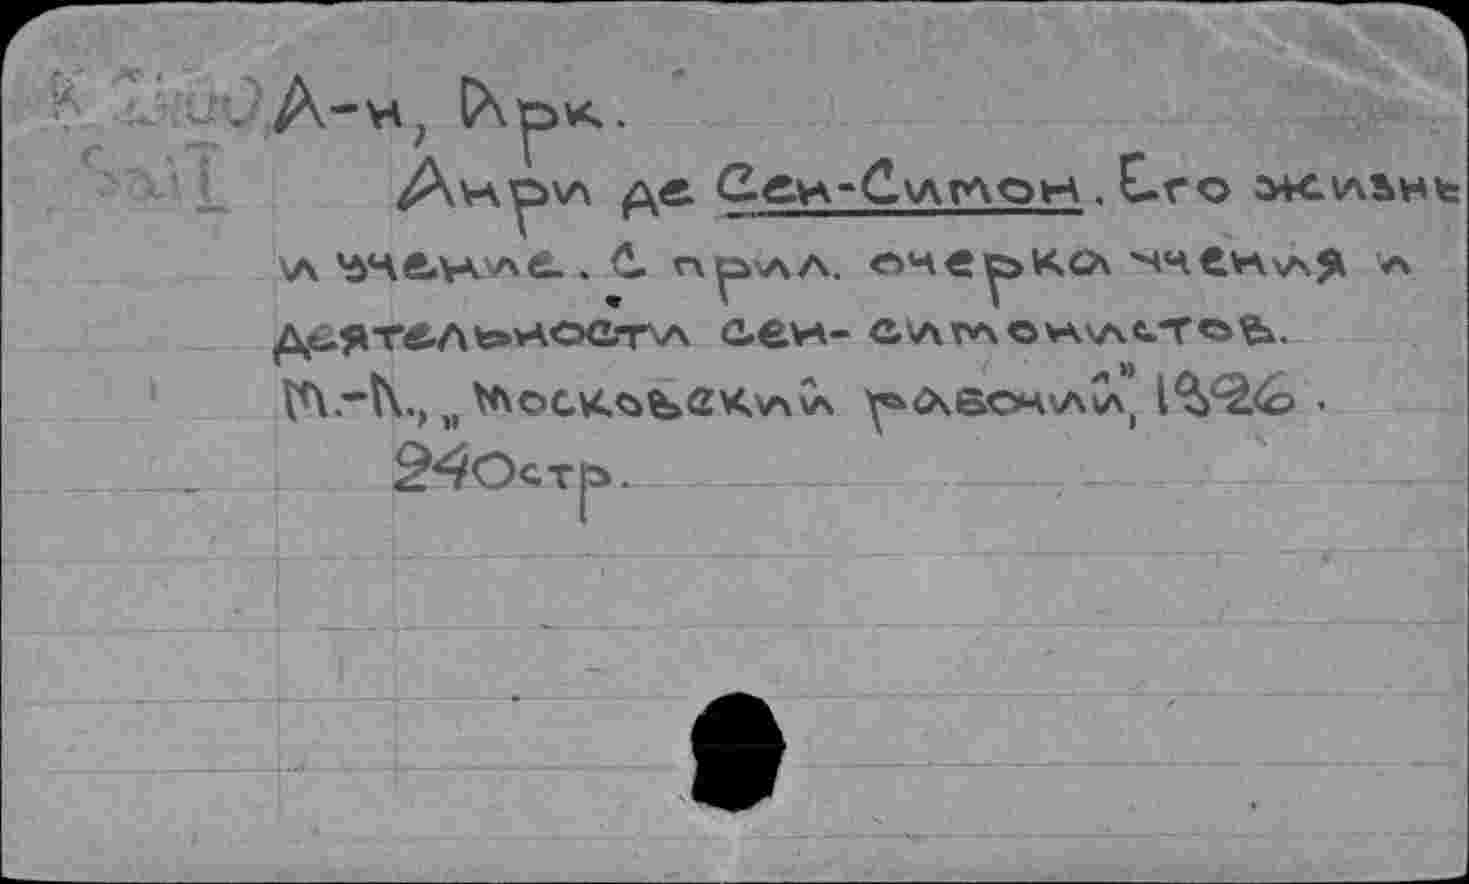 А-н, Арк.
Анри де Сен-Симон. Его жизнь
и учение.. С прил. очерка учения и
деятельности сен-симонистов.
М.-Л., „Московский рабочий", 1926.
24Остр.